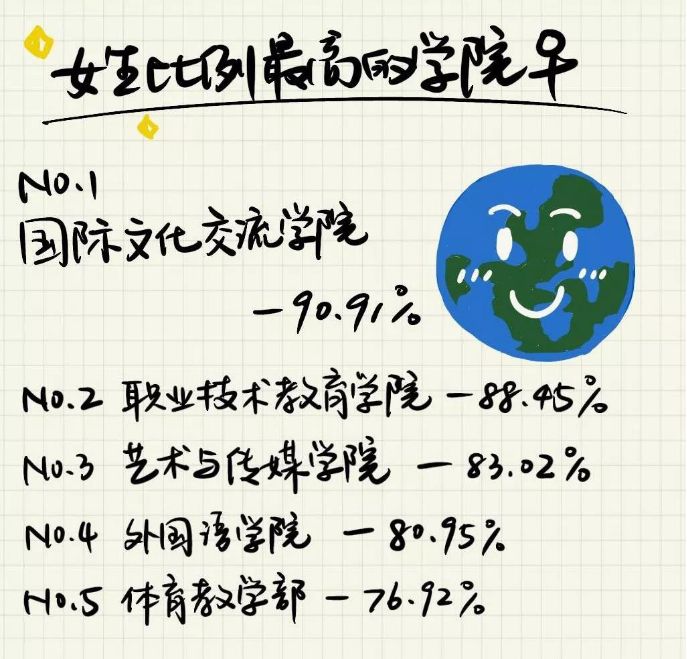 女生比例最高的学院♀
NO.1
国际文化交流学院
-90.91%
NO.2 职业技术教育学院 -88.45%
NO.3 艺术与传媒学院 -83.02%
NO.4 外国语学院 -80.95%
NO.5 体育教学部 -76.92%